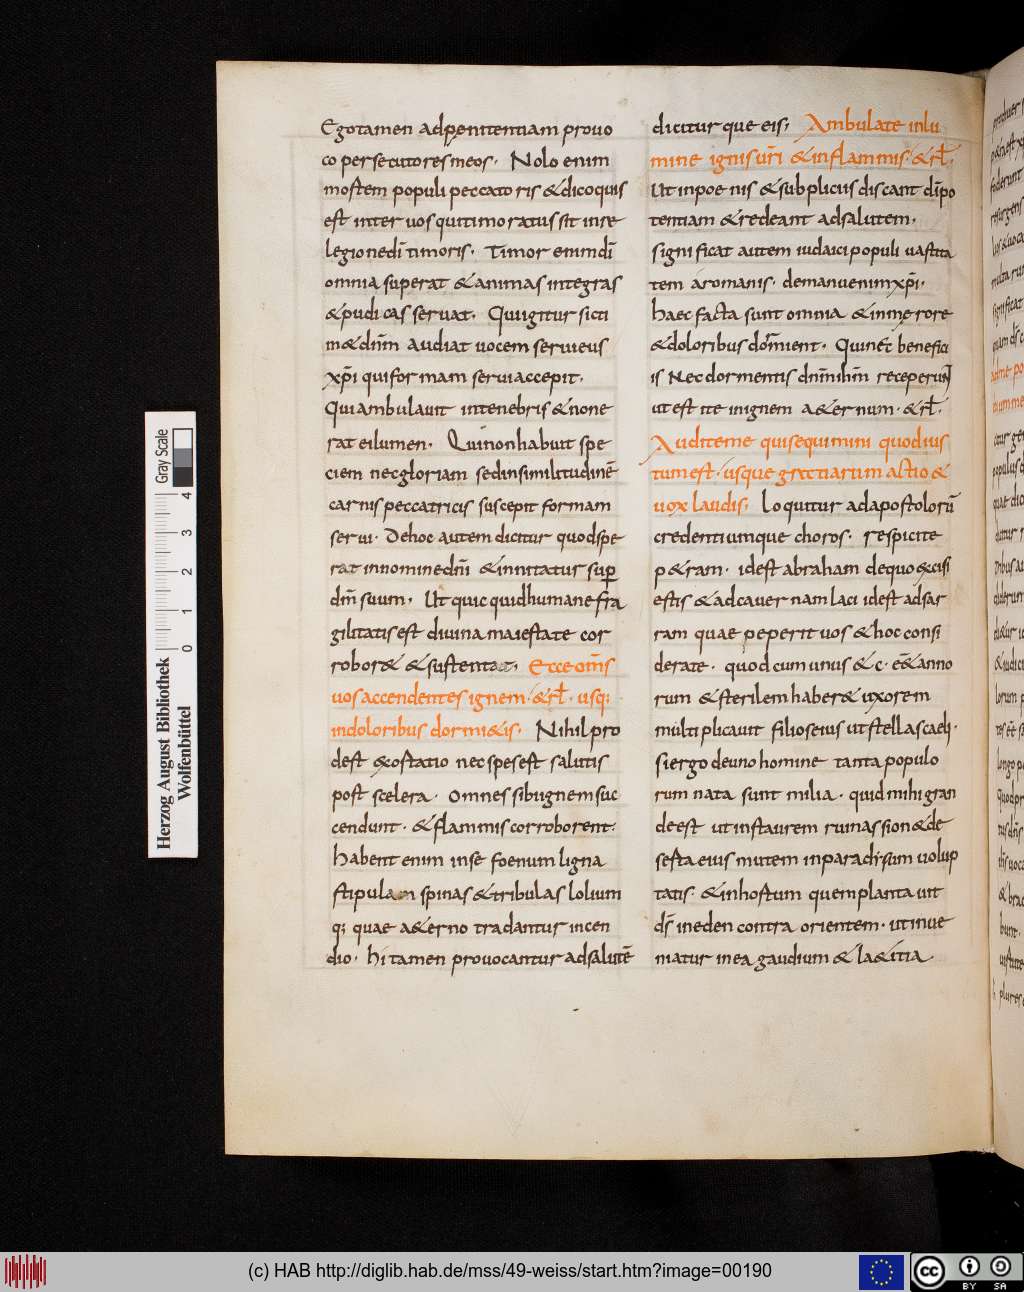 Ego tamen ad penitentiam provo
co persecutores meos. Nolo enim
mortem populi peccatoris & dico quis
est inter vos qui timoratus sit in re
legione dī timoris. Timor enim dī
omnia superat & animas integras
& pudicas servat. Qui igitur sicti
m& dnm̄ audiat vocem servi eius
xpī qui formam servi accepit.
Qui ambulavit in tenebris & non e
rat ei lumen. Qui non habuit spe
ciem nec gloriam sed in similitudinē
carnis peccatricis suscepit formam
servi. De hoc autem dicitur quod spe
rat in nomine dnī & innitatur sup
dm̄ suum. Ut quicquid humane fra
gilitatis est divina maiestate cor
robor& & sustentat. Ecce om̄s
vos accendentes ignem. & rl̄. usq;
in doloribus dormi&is. Nihil pro
dest &ostatio nec spes est salutis
post scelera. Omnes sibi ignem suc
cendunt. & flammis corroborent.
habent enim in se foenum ligna
stipulam spinas & tribulas lolium
q; quae a&erno tradantur incen
dio. hi tamen provocantur ad salutē
dicitur que eis. Ambulate in lu
mine ignis vr̄i & in flammis. & rl̄.
Ut in poenis & subpliciis discant dī po
tentiam & redeant ad salutem.
significat autem iudaici populi vastita
tem a romanis. de manu enim xpī.
haec facta sunt omnia & in merore
& doloribus dormient. Qui nec̄ benefici
is Nec dormentis dnm̄ nihm̄ receperunt
ut est ite in ignem a&ernum. & rl̄.
Audite me qui sequimini quod ius
tum est. usque gratiarum actio &
vox laudis. Loquitur ad apostolorū
credentiumque choros. respicite
p&ram. id est abraham de quo &cisi
estis & ad cavernam laci id est ad sar
ram quae peperit vos & hoc consi
derate. quod cum unus & c. e&anno
rum & sterilem haber& uxorem
multiplicavit filios eius ut stellas caeli.
si ergo de uno homine tanta populo
rum nata sunt milia. quid mihi gran
de est ut instaurem ruinas sion & de
serta eius mutem in paradisum volup
tatis. & in hostum quem plantavit
ds̄ in eden contra orientem. ut inve
niatur in ea gaudium & la&itia.
Herzog August Bibliothek
Wolfenbüttel
0 1 2 3 4
Gray Scale
(c) HAB http://diglib.hab.de/mss/49-weiss/start.htm?image=00190
cc BY SA